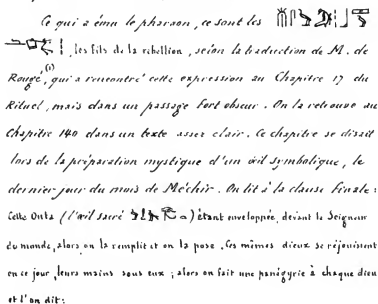 Ce qui a ému le pharaon, ce sont les
, les fils de la rébellion, selon la traduction de M. de
Rougé,(1) qui a rencontré cette expression au Chapitre 17 du
Rituel, mais dans un passage fort obscur. On la retrouve au
Chapitre 140 dans un texte assez clair. Ce chapitre se disait
lors de la préparation mystique d'un œil symbolique, le
dernier jour du mois de Méchir. On lit à la clause finale:
Cette Outa (l'œil sacré ) étant enveloppée, devant le Seigneur
du monde, alors on la remplit et on la pose. Ces mêmes dieux se réjouissent
en ce jour, leurs mains sous eux; alors on fait une panégyrie à chaque dieu
et l'on dit: